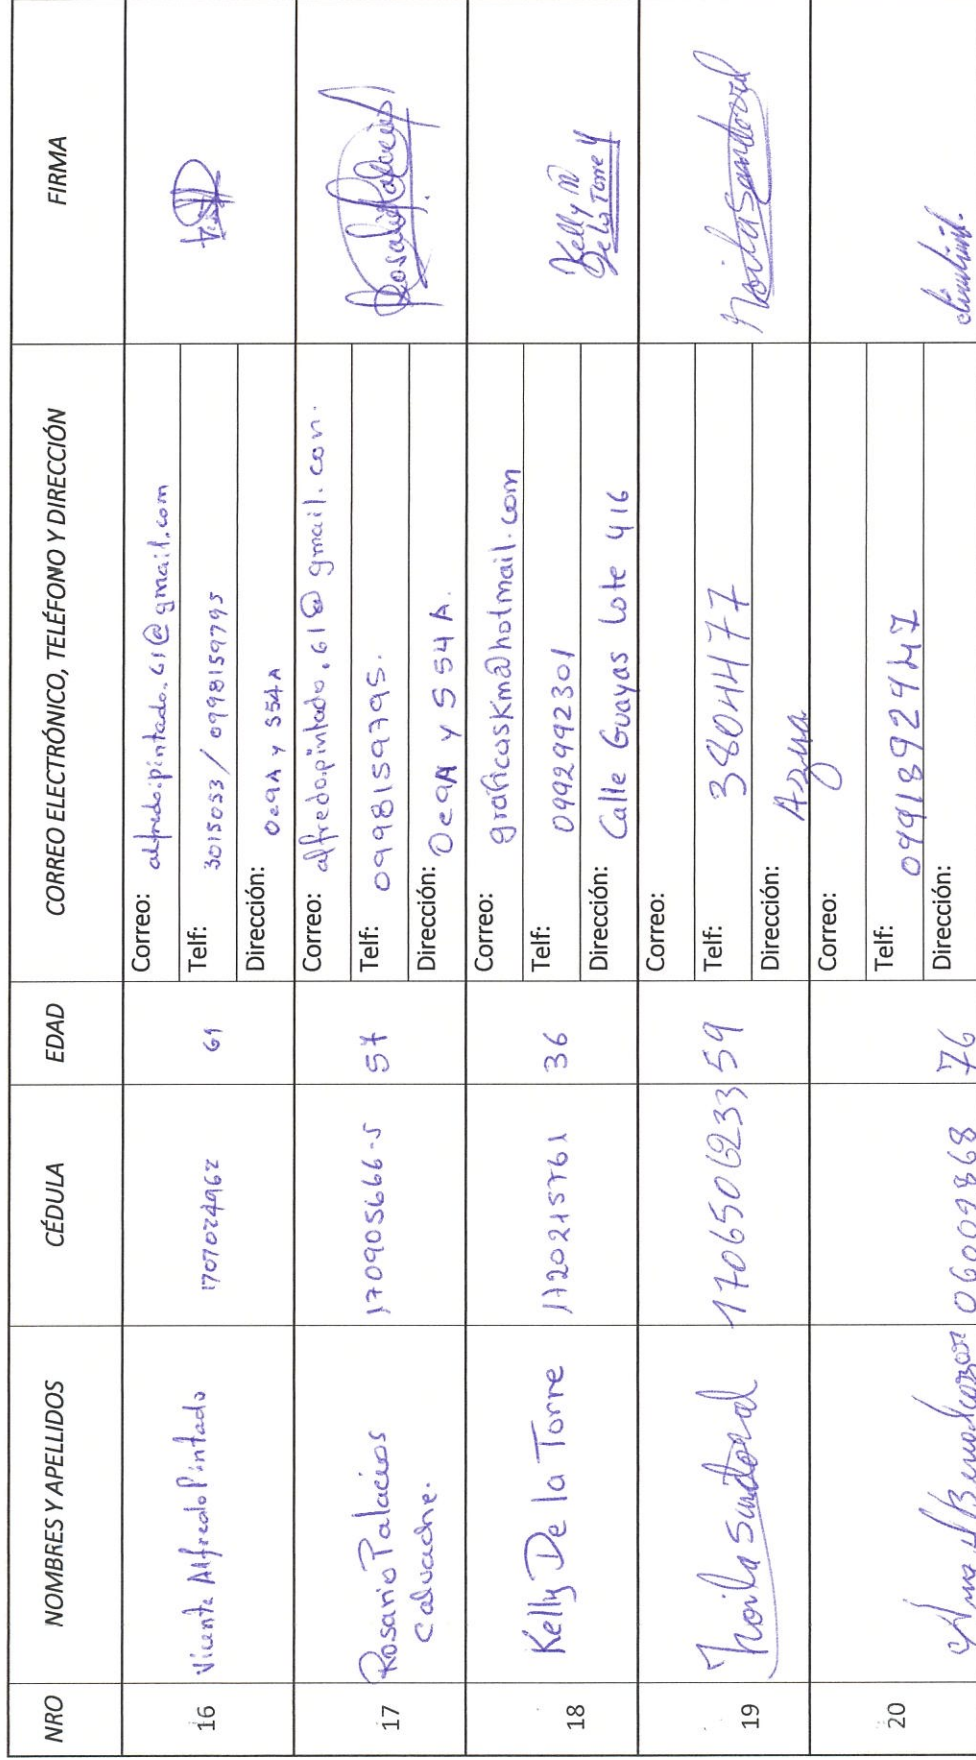 NRO NOMBRES Y APELLIDOS CÉDULA EDAD CORREO ELECTRÓNICO, TELÉFONO Y DIRECCIÓN FIRMA
16 Vicente Alfredo Pintado 1707024962 61
Correo: alfredo.pintado.61@gmail.com
Telf: 3015053 / 0998159795
Dirección: Oe9A y S54A
17 Rosario Palacios
Calvache. 170905666-5 57
Correo: alfredo.pintado.61@gmail.com.
Telf: 0998159795.
Dirección: Oe9A y S54A.
Rosario Palacios
18 Kelly De la Torre 1720215761 36
Correo: graficaskm@hotmail.com
Telf: 0992992301
Dirección: Calle Guayas Lote 416
Kelly
De la Torre
19 Zoila Sandoval 1706506233 59
Correo:
Telf: 3804477
Dirección: Azua
Zoila Sandoval
20 76
Correo:
Telf: 0991892947
Dirección: